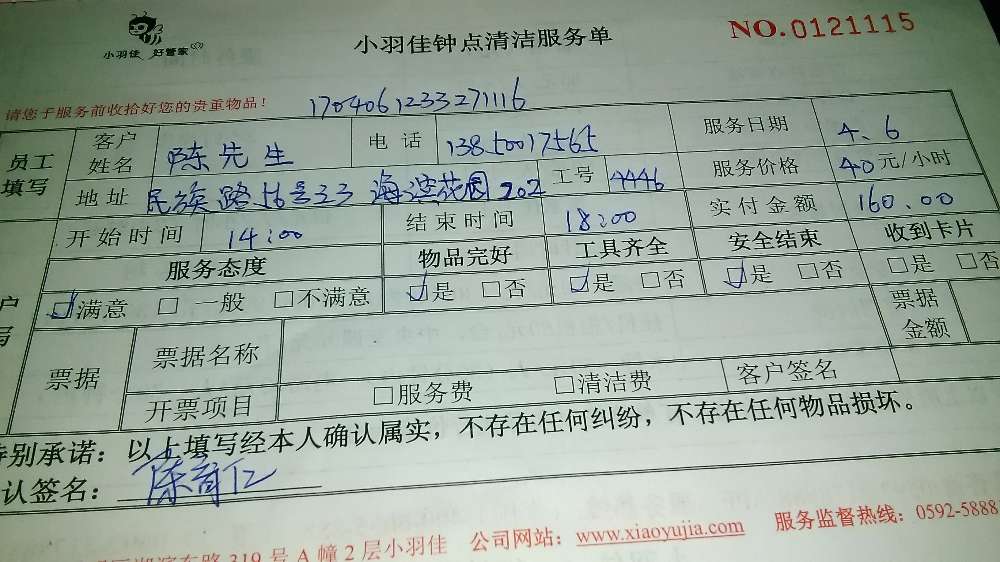 小羽佳 好管家
小羽佳钟点清洁服务单
NO.0121115
请您于服务前收拾好您的贵重物品！
1704061233271116
员工填写 客户姓名 陈先生 电话 13850017565 服务日期 4.6
地址 民族路56号23海滨花园202 工号 4446 服务价格 40元/小时
开始时间 14:00 结束时间 18:00 实付金额 160.00
服务态度 物品完好 工具齐全 安全结束 收到卡片
☑满意 □一般 □不满意 ☑是 □否 ☑是 □否 ☑是 □否 □是 □否
票据 票据名称 票据金额
开票项目 □服务费 □清洁费 客户签名
特别承诺：以上填写经本人确认属实，不存在任何纠纷，不存在任何物品损坏。
认签名：
319号A幢2层小羽佳 公司网站：www.xiaoyujia.com 服务监督热线：0592-5888